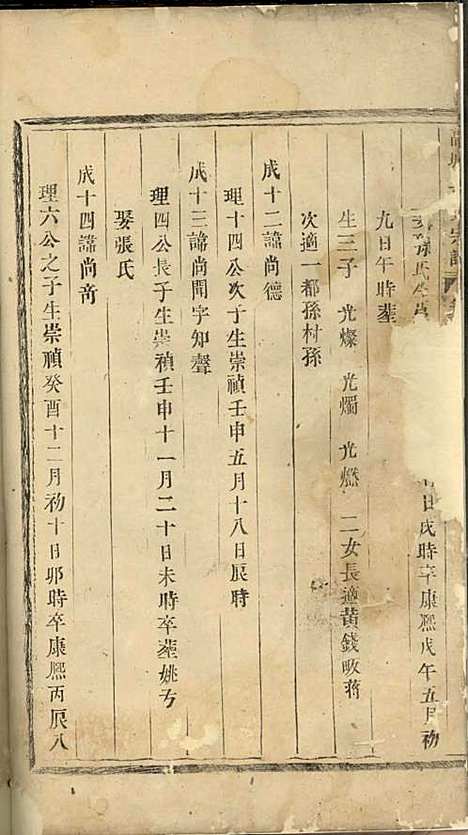 日戌時卒康熙戊午五月初
九日午時葬
生三子 光燦 光燭 光燃 二女長適黄錢畈蔣
次適一都孫村孫
成十二諱尚德
理十四公次子生崇禎壬申五月十八日辰時
成十三諱尚聞字知聲
理四公長子生崇禎壬申十一月二十日未時卒葬姚方
娶張氏
成十四諱尚
理六公之子生崇禎癸酉十二月初十日卯時卒康熙丙辰八